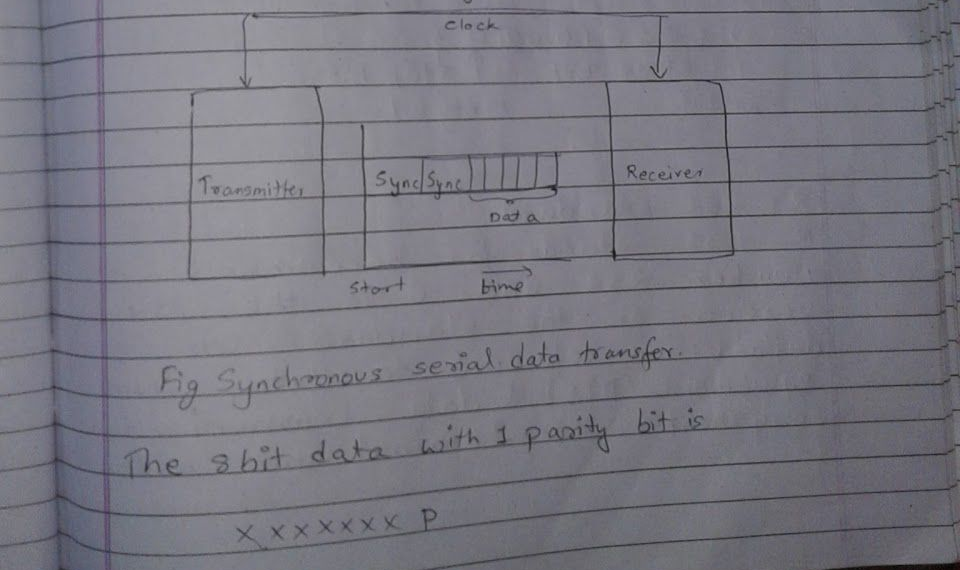 Clock
Transmitter
Sync Sync
Data
Receiver
Start time
Fig Synchronous serial data transfer.
The 8bit data with 1 parity bit is
X X X X X X X P